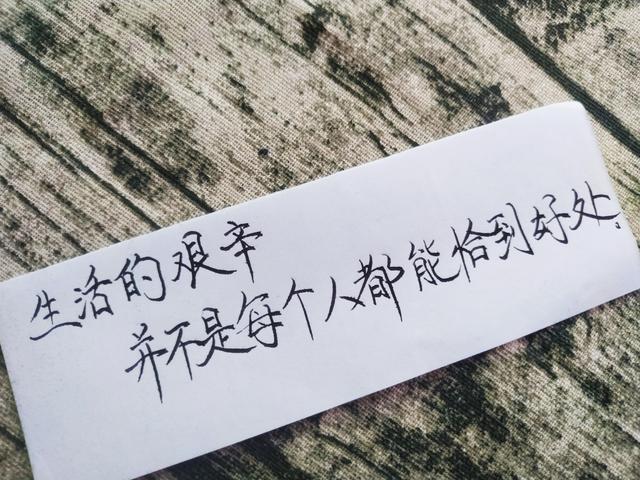 生活的艰辛
并不是每个人都能恰到好处。